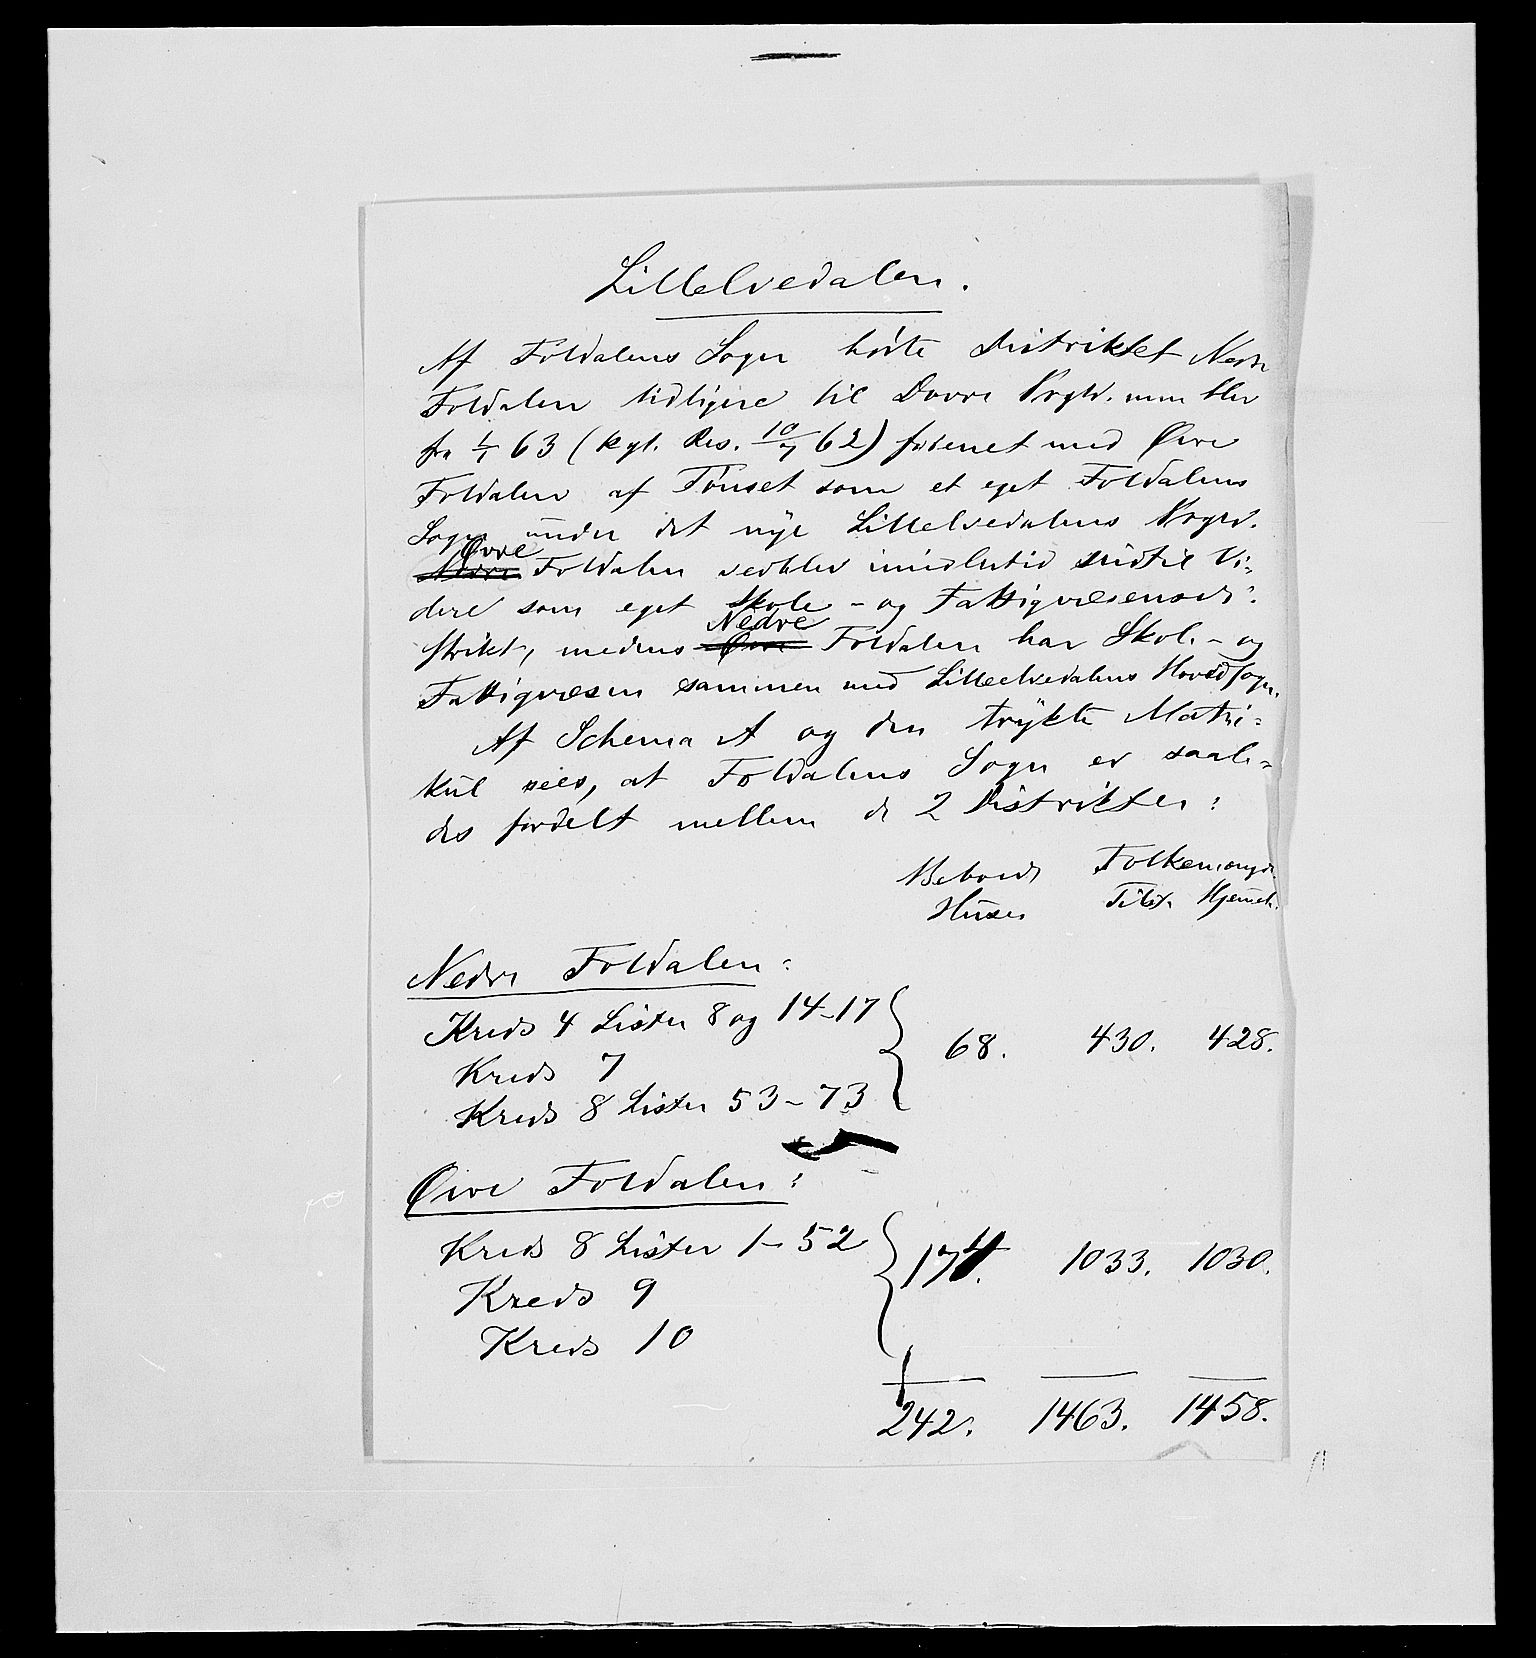 Lillelvedalen.
Af Foldalens Sogn hørte Distriktet Nedre
Foldalen tidligere til Dovre Prgld. men blev
fra 1/1 63 (kgl. Res. 10/7 62) forenet med Øvre
Foldalen af Tønset som et eget Foldalens
Sogn under det nye Lillelvedalens Prgld.
Øvre
Nedre Foldalen vedblev imidlertid indtil Vi-
dere som eget Skole- og Fattigvæsensdi-
Nedre
strikt, medens Øvre Foldalen har Skole- og
Fattigvæsen sammen med Lilleelvedalens Hovedsogn.
Af Schema A og den trykte Matri-
kul sees, at Foldalens Sogn er saale-
des fordelt mellem de 2 Distrikter:
Beboede Folkemængde
Huse Tilst. Hjemeh.
Nedre Foldalen:
Kreds 4 Lister 8 og 14-17
Kreds 7 68. 430. 428.
Kreds 8 Lister 53-73
Øvre Foldalen:
Kreds 8 Lister 1-52
Kreds 9 174. 1033. 1030.
Kreds 10
242. 1463. 1458.